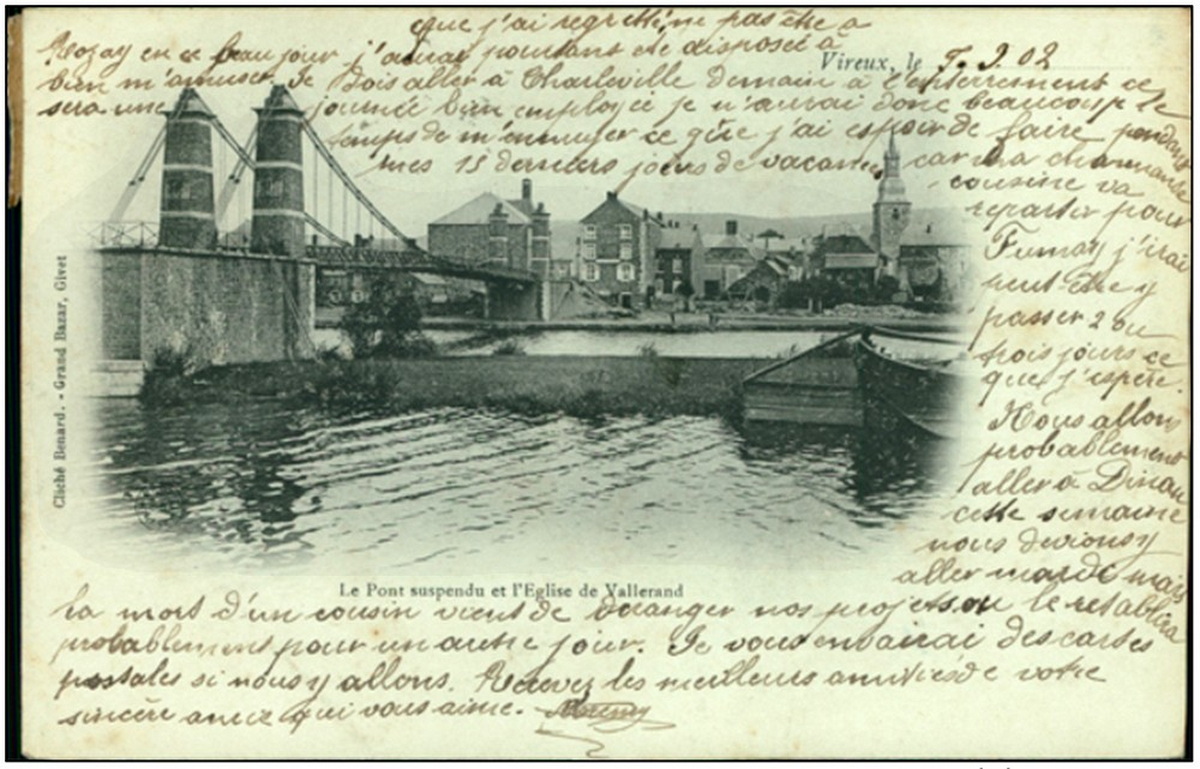 que j'ai regretté ne pas être à
Rozay en ce beau jour j'aurai pourtant été disposée à
Vireux, le 7. 9. 02
bien m'amuser. Je dois aller à Charleville demain à l'enterrement ce
sera une journée bien employée je n'aurai donc beaucoup le
temps de m'ennuyer ce que j'ai espoir de faire pendant
mes 15 derniers jours de vacances car ma charmante
cousine va
repartir pour
Fumay j'irai
peut-être y
passer 2 ou
trois jours ce
que j'espère.
Nous allons
probablement
aller à Dinan
cette semaine
nous devions y
aller mardi mais
Cliché Benard. - Grand Bazar, Givet
Le Pont suspendu et l'Eglise de Vallerand
la mort d'un cousin vient de déranger nos projets on le rétablira
probablement pour un autre jour. Je vous enverrai des cartes
postales si nous y allons. Recevez les meilleurs amitiés de votre
sincère amie qui vous aime.